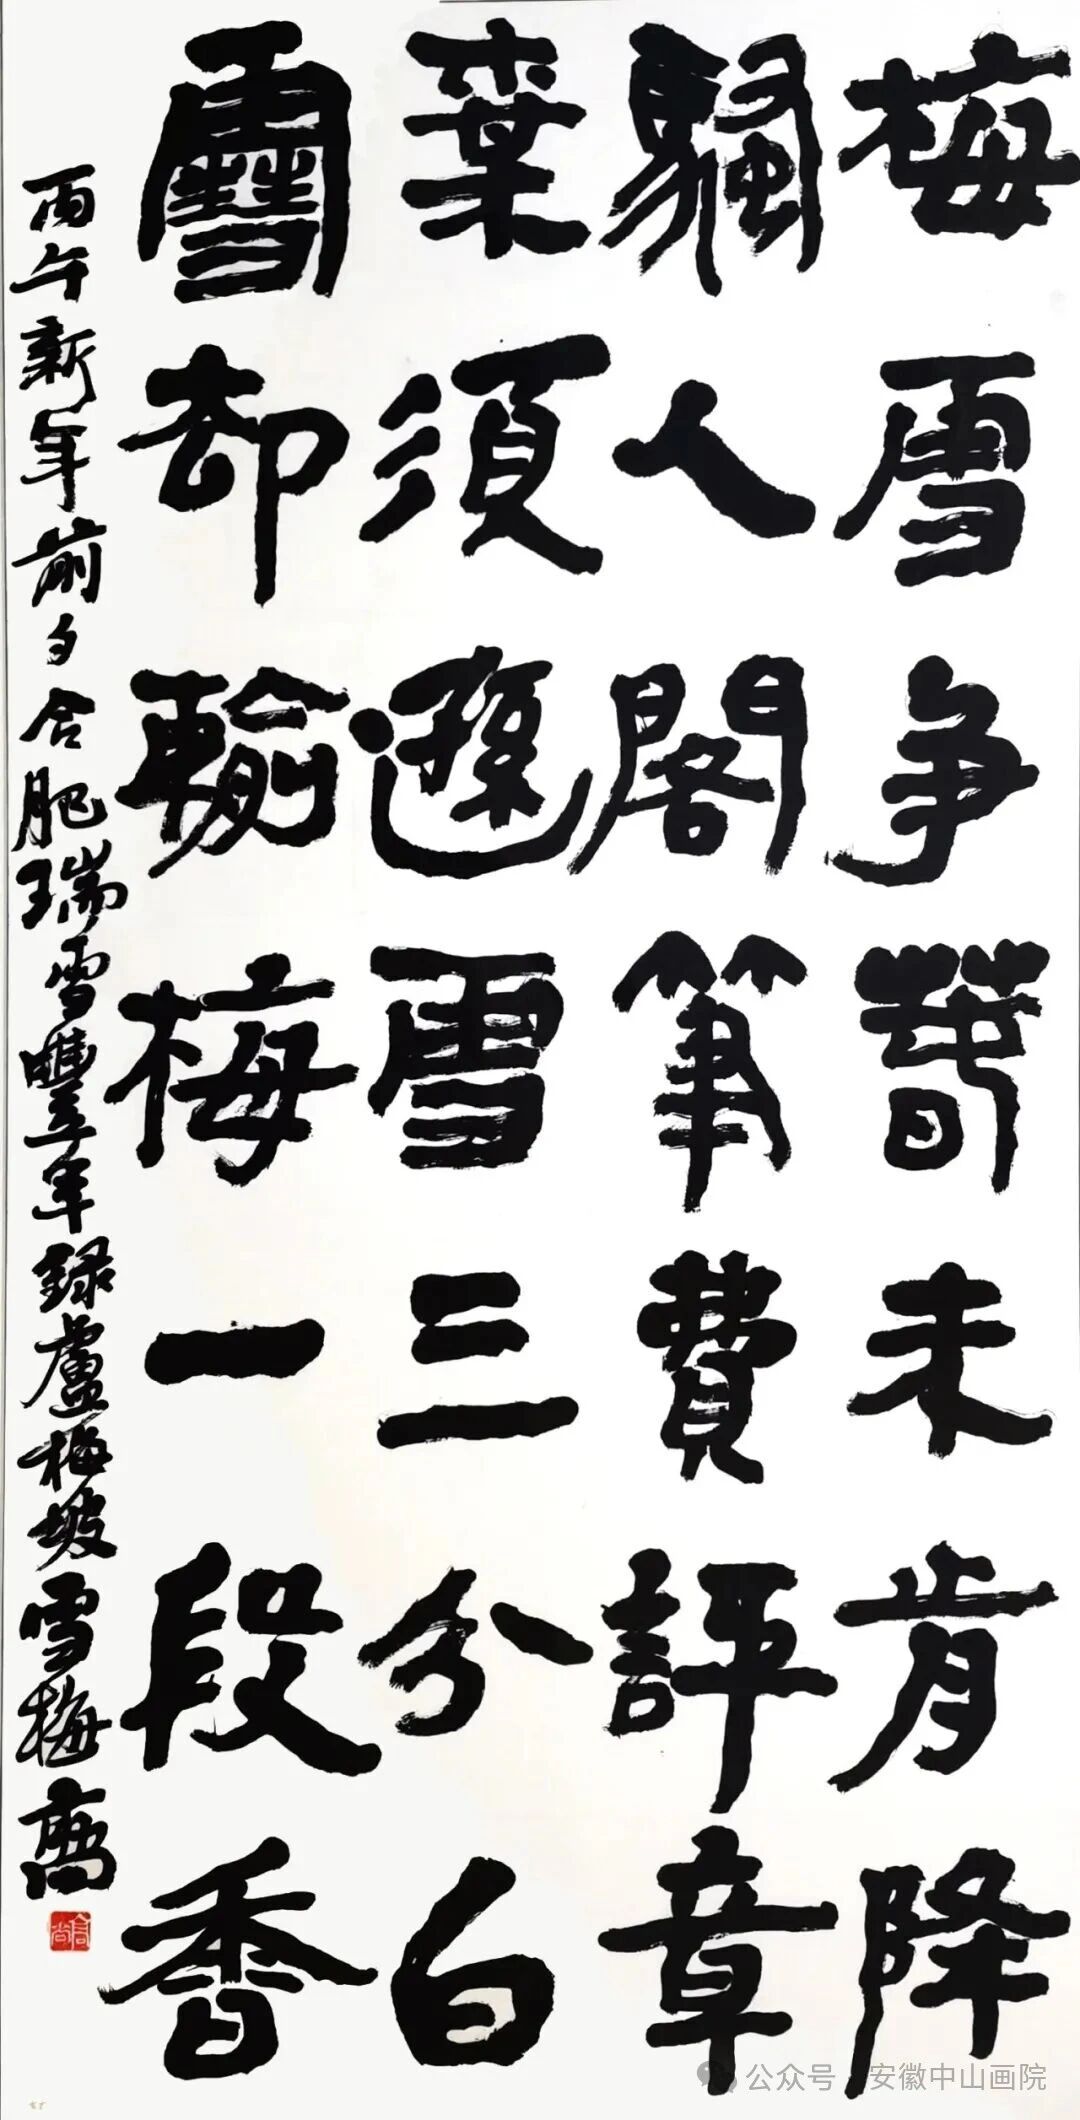 梅雪争萅未肯降
騷人閣筆費評章
須遜雪三分白
雪却輸梅一段香
丙午新年前夕合肥瑞雪豐年録盧梅坡雪梅
高尚
公众号·安徽中山画院